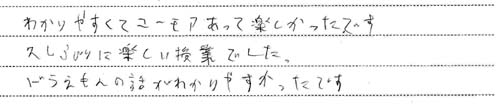 わかりやすくてユーモアあって楽しかったです
久しぶりに楽しい授業でした。
ドラえもんの話がわかりやすかったです